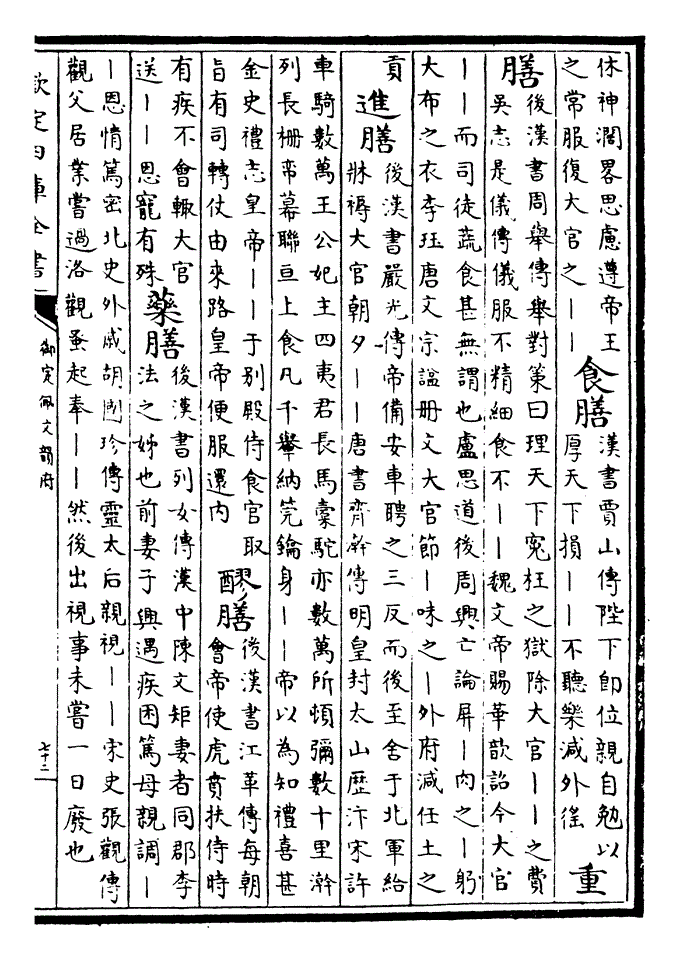 休神濶畧思慮遵帝王
之常服復大官之丨丨
食膳
漢書賈山傳陛下卽位親自勉以
厚天下損丨丨不聽樂減外徭
重
膳
後漢書周舉傳舉對策曰理天下寃枉之獄除大官丨丨之費
吳志是儀傳儀服不精細食不丨丨魏文帝賜華歆詔今大官
丨丨而司徒蔬食甚無謂也盧思道後周興亡論屏丨肉之丨躬
大布之衣李珏唐文宗謚册文大官節丨味之丨外府減任土之
貢
進膳
後漢書嚴光傳帝備安車聘之三反而後至舍于北軍給
牀褥大官朝夕丨丨唐書齊澣傳明皇封太山歴汴宋許
車騎數萬王公妃主四夷君長馬橐駝亦數萬所頓彌數十里澣
列長栅帟幕聯亘上食凡千轝納筦鑰身丨丨帝以為知禮喜甚
金史禮志皇帝丨丨于别殿侍食官取
旨有司轉仗由來路皇帝便服還内
醪膳
後漢書江革傳每朝
會帝使虎賁扶侍時
有疾不會輒大官
送丨丨恩寵有殊
藥膳
後漢書列女傳漢中陳文矩妻者同郡李
法之姊也前妻子興遇疾困篤母親調丨
丨恩情篤密北史外戚胡國珍傳靈太后親視丨丨宋史張觀傳
觀父居業嘗過洛觀蚤起奉丨丨然後出視事未嘗一日廢也
欽定四庫全書
御定佩文韻府
七十二